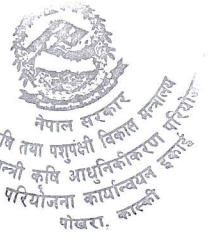 नेपाल सरकार
कृषि तथा पशुपंक्षी विकास मन्त्रालय
मन्त्री कृषि आधुनिकीकरण परियोजना
परियोजना कार्यान्वयन इकाई
पोखरा, कास्की